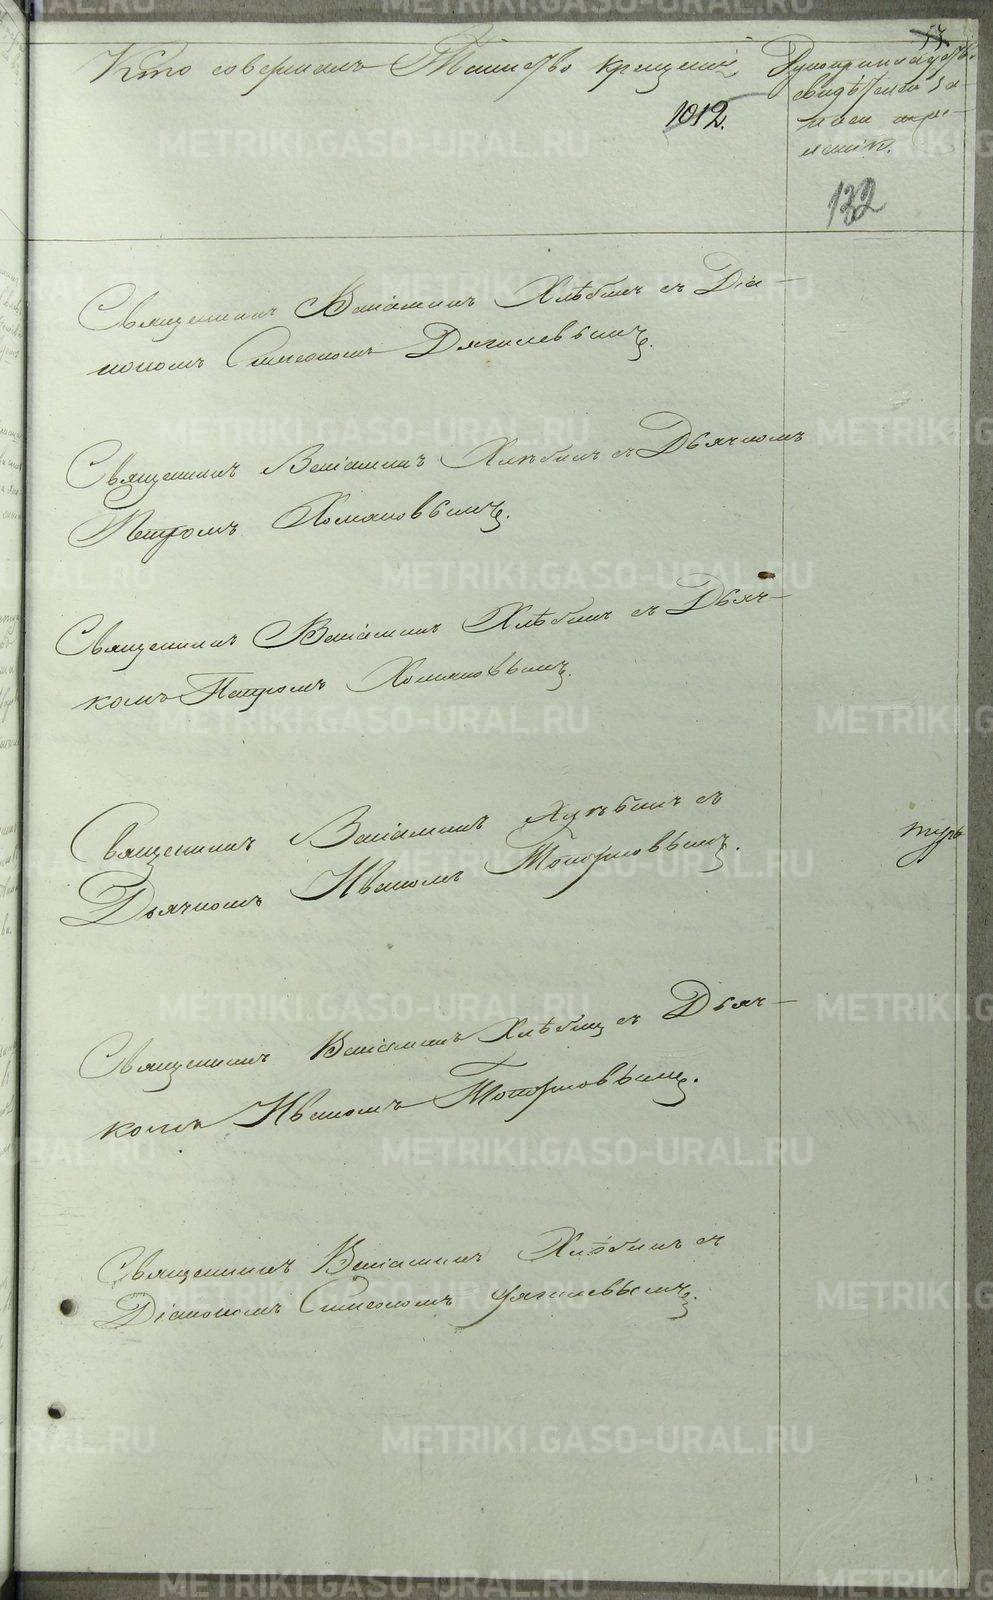 53.
Кто совершалъ Таинство крещенiй
1012.
Рукоприкладство
свидѣтелей за-
писи по же-
ланiю.
132
Священникъ Венiаминъ Хлѣбинъ съ Дiа-
кономъ Симеономъ Дягилевымъ.
Священникъ Венiаминъ Хлѣбинъ съ Дьячкомъ
Петромъ Хомяковымъ.
Священникъ Венiаминъ Хлѣбинъ съ Дьяч-
комъ Петромъ Хомяковымъ.
Священникъ Венiаминъ Хлѣбинъ съ
Дьячкомъ Иваномъ Топорковымъ.
Священникъ Венiаминъ Хлѣбинъ съ Дьяч-
комъ Иваномъ Топорковымъ.
Священникъ Венiаминъ Хлѣбинъ съ
Дiакономъ Симеономъ Дягилевымъ.
METRIKI.GASO-URAL.RU